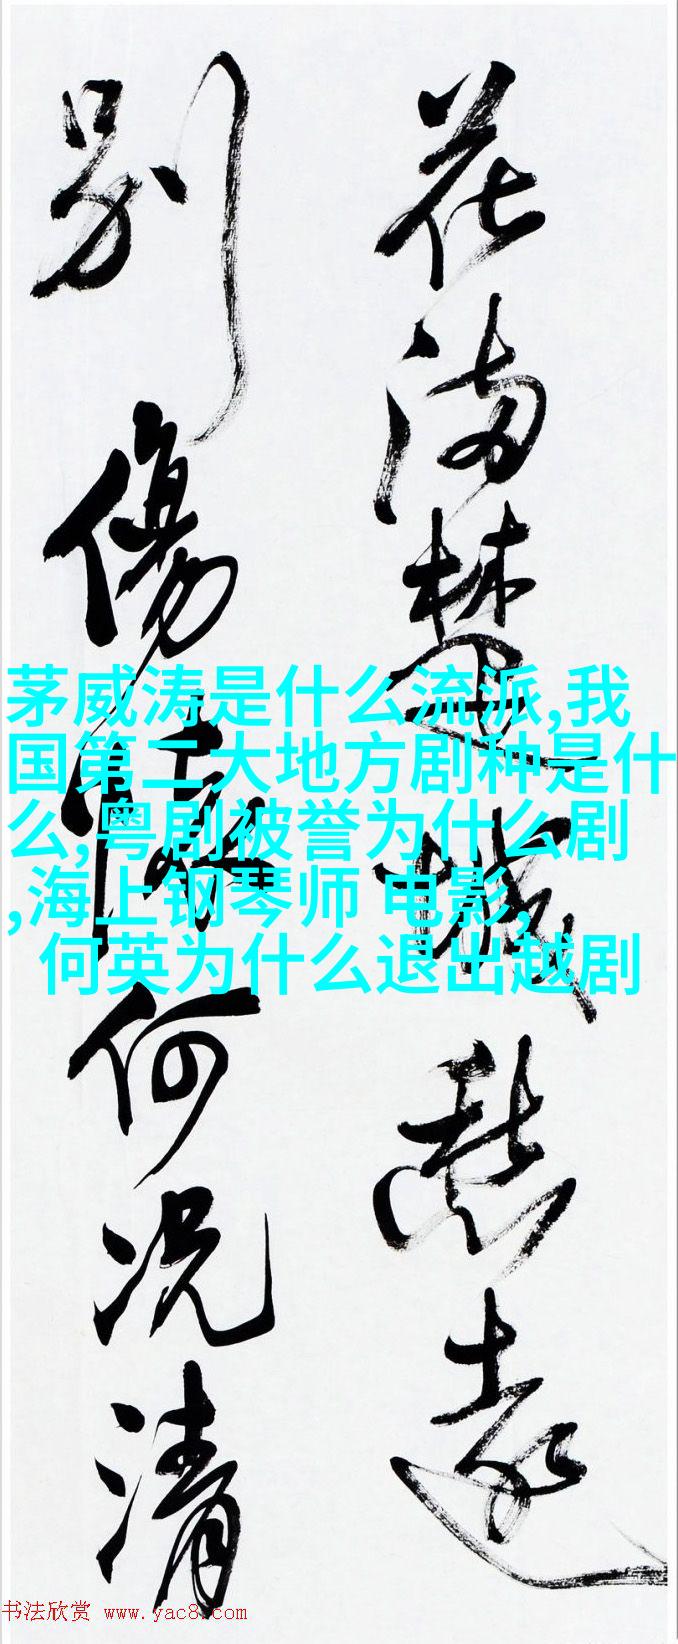 花滿楚城愁遠
别傷何况清
茅威涛是什么流派,我
国第二大地方剧种是什
么,粤剧被誉为什么剧
,海上钢琴师 电影,
何英为什么退出越剧
书法欣赏 www.yac8.com